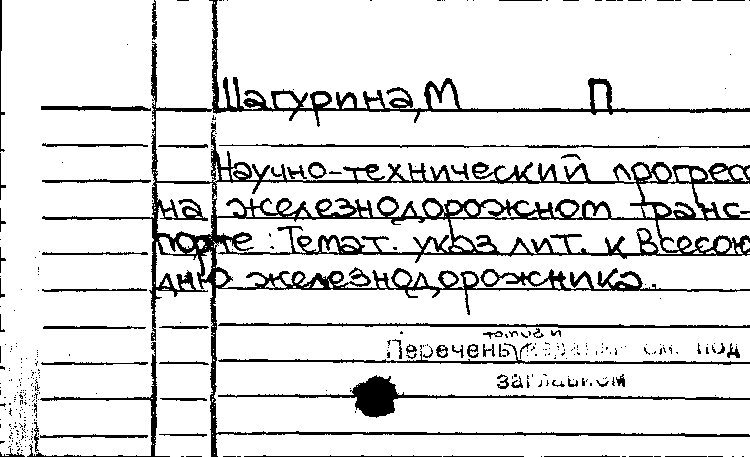 Шагурина, М П
Научно-технический прогресс
на железнодорожном транс-
порте: Темат. указ лит. к Всесою
дню железнодорожника.
Перечень см. под
заглавием